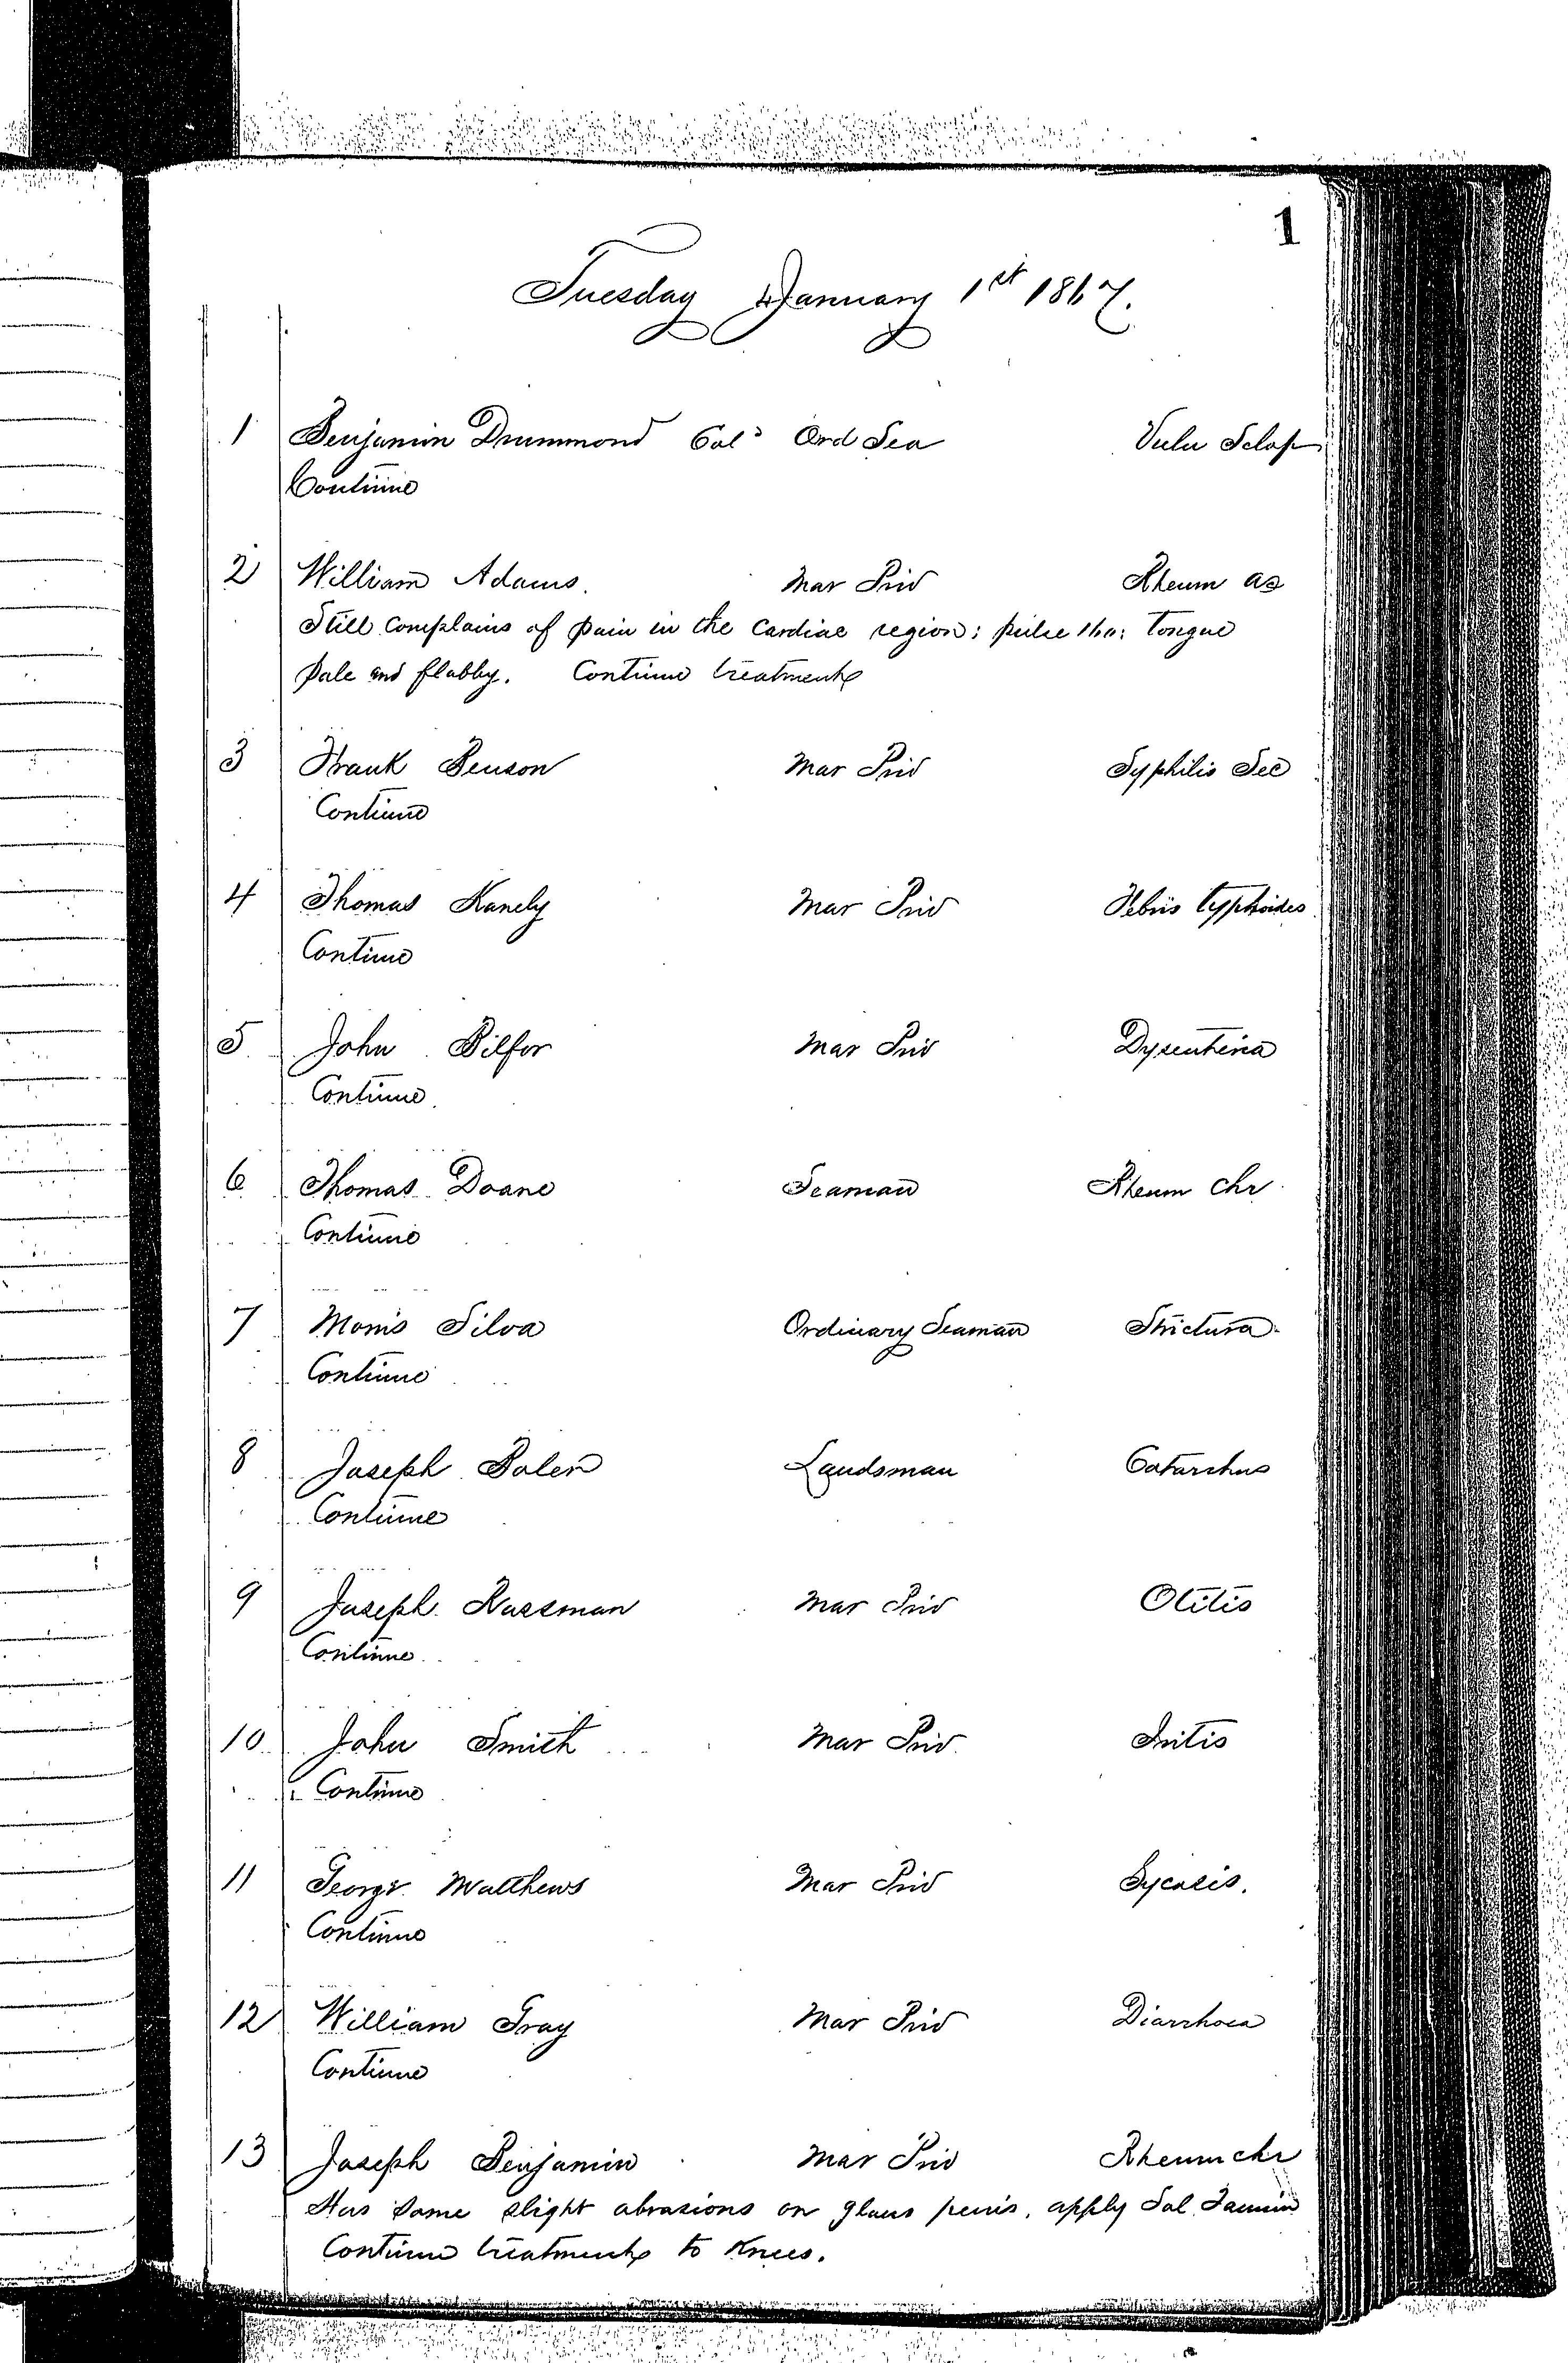 1
Tuesday January 1st 1867.
1 Benjamin Drummond Cold Ord Sea Vuln Sclop
Continue
2 William Adams. Mar Priv Rheum ac
Still complains of pain in the cardiac region; pulse tongue
pale and flabby. Continue treatment
3 Frank Benson Mar Priv Syphilis Sec
Continue
4 Thomas Kanely Mar Priv Febris typhoides
Continue
5 John Pilfor Mar Priv Dysenteria
Continue
6 Thomas Doane Seaman Rheum chr
Continue
7 Morris Silva Ordinary Seaman Strictura
Continue
8 Joseph Bolen Landsman Catarrhus
Continue
9 Joseph Kussman Mar Priv Otitis
Continue
10 John Smith Mar Priv Iritis
Continue
11 George Matthews Mar Priv Sycosis.
Continue
12 William Gray Mar Priv Diarrhoea
Continue
13 Joseph Benjamin Mar Priv Rheum chr
Has some slight abrasions on glans penis. apply Sol Tannin
Continue treatment to knees.